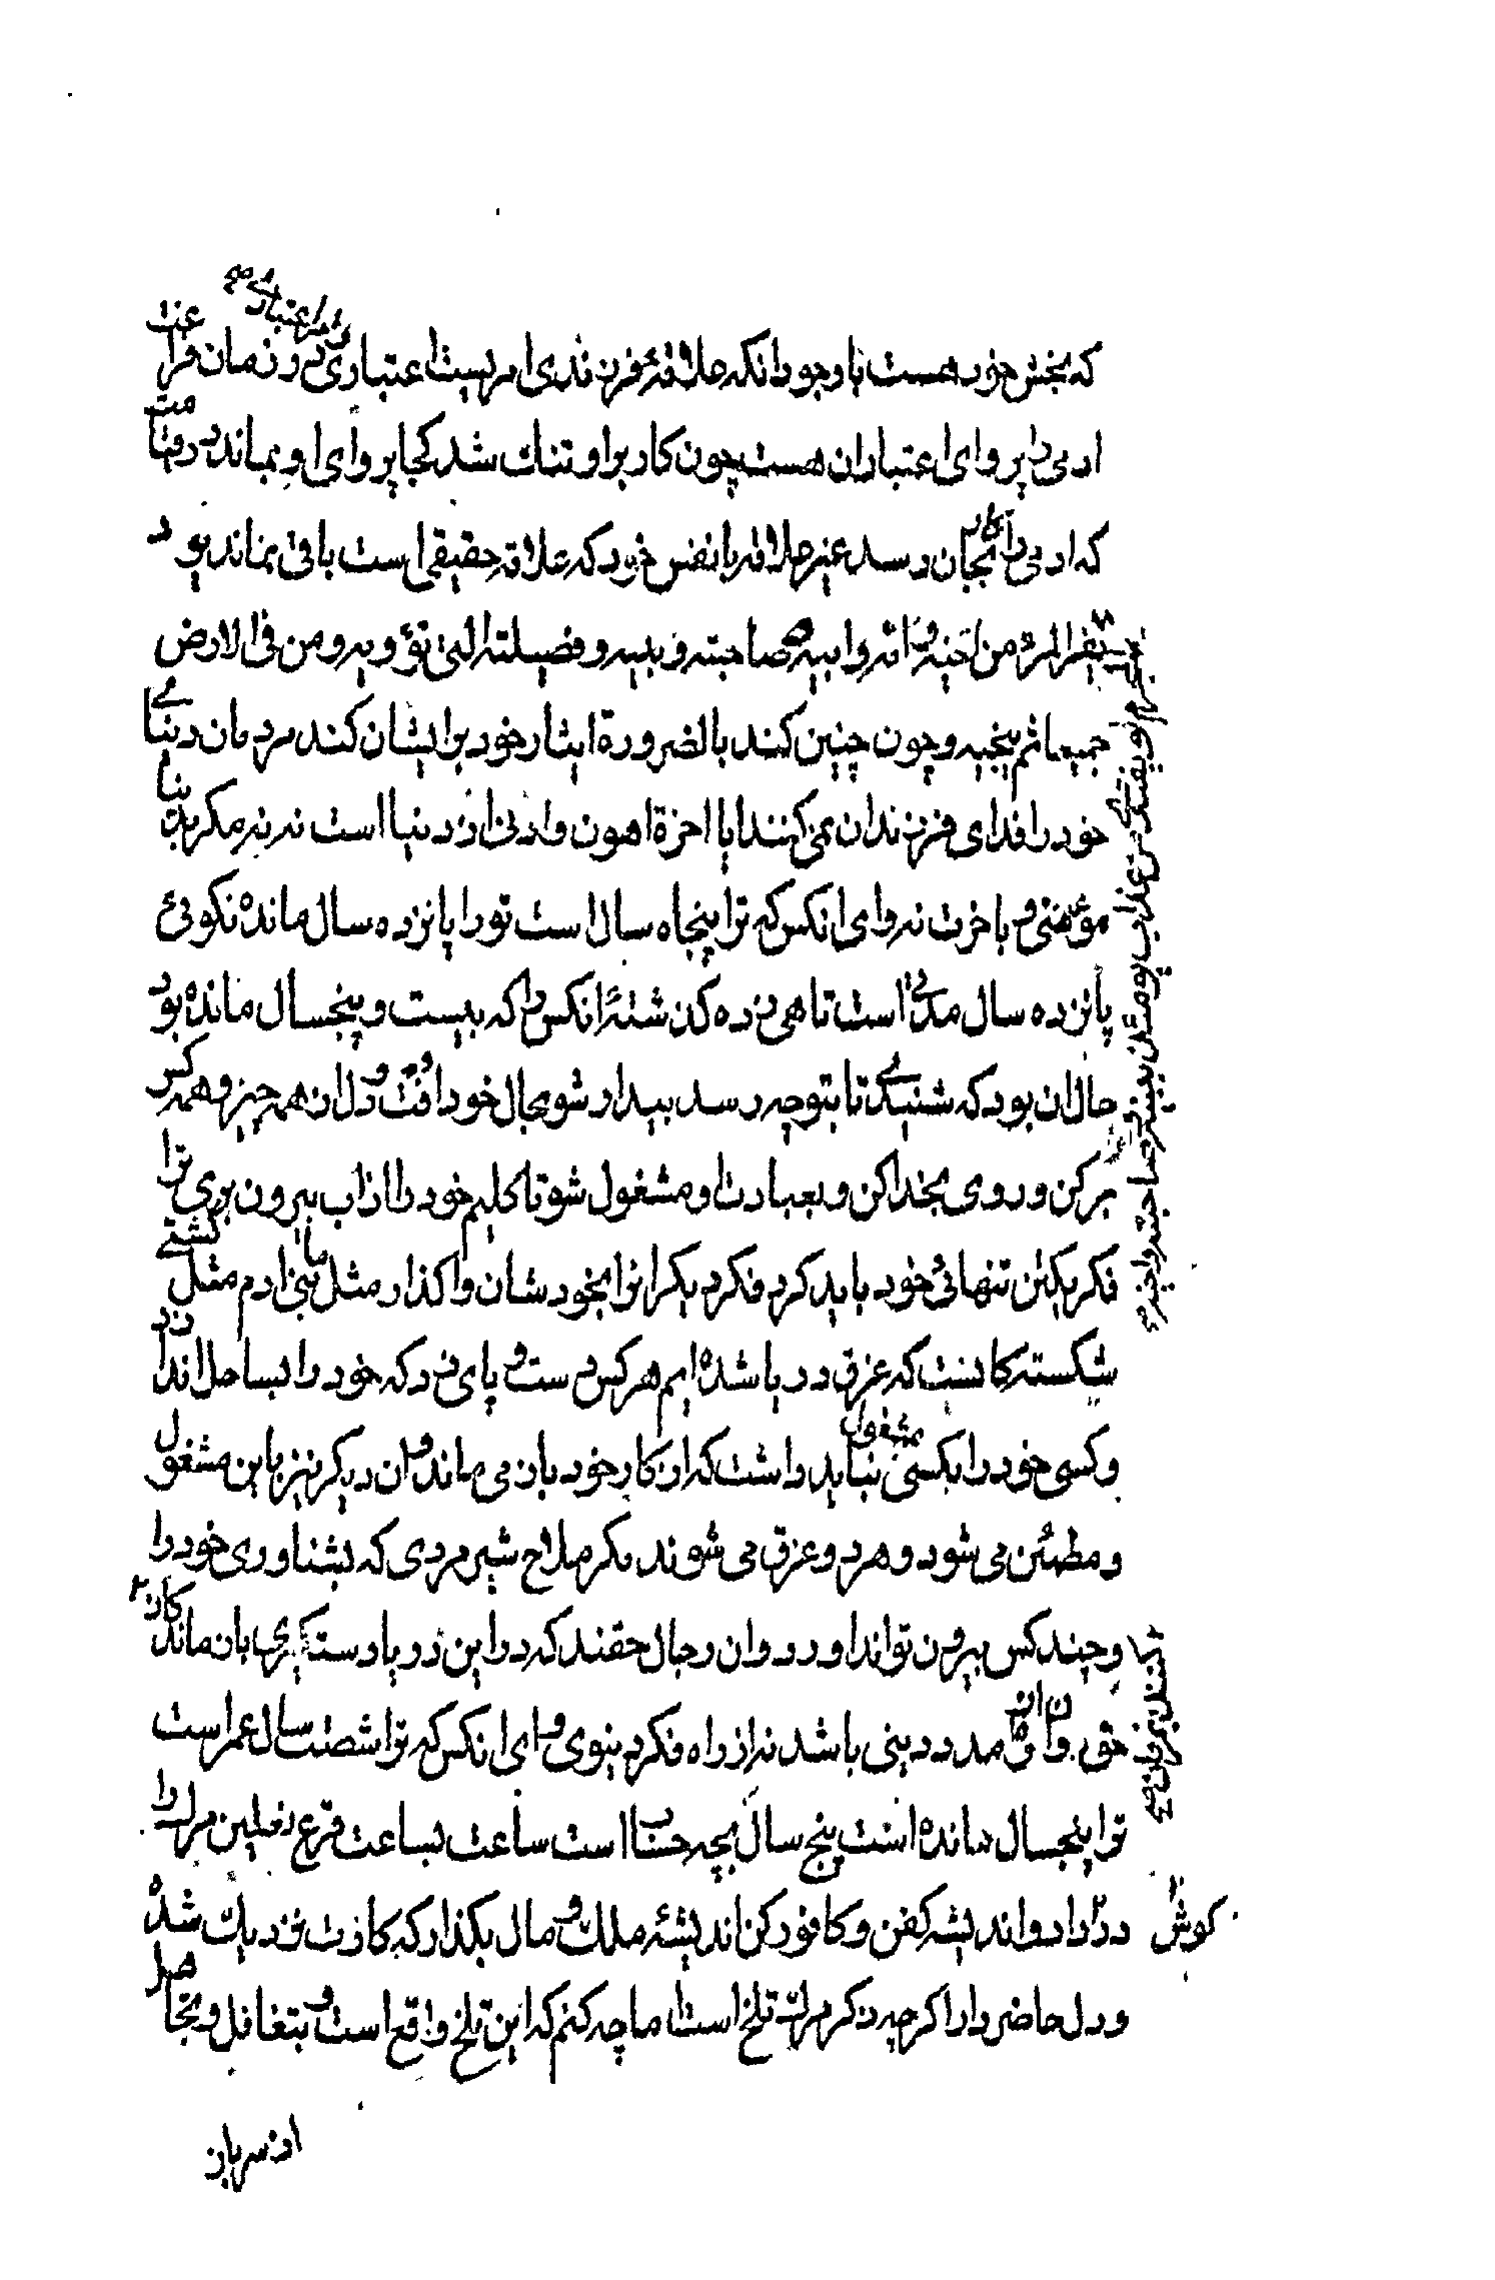 که بخش خود هست با وجود انکه علاقۀ فرزندی امریست اعتباری در زمان فراغت
ادمی را پروای اعتباران هست چون کار براو تنك شد کجا پروای او بماند در قیامت
که ادمی را کار بجان رسد غیر علاقه با نفس خود که علاقه حقیقی است باقی نماند یود
یفر المرء من اخیه و امه و ابیه و صاحبته و بنیه و فصیلته التی تؤویه و من فی الارض
جمیعا ثم ینجیه و چون چنین کنند بالضرورة ایثار خود بر ایشان کنند مردمان دنیای
خود را فدای فرزندان نمی کنند ایا اخرة اهون و ادنی از دنیا است نه نه مکر بدنیا
مؤمنی و باخرت نه و ای انکس که ترا پنجاه سال است تو را پانزده سال مانده نکوئی
پانزده سال مدتی است تا همی زده کذشته انکس را که بیست و پنجسال مانده بود
حال ان بود که شنیدی تا بتو چه رسد بیدار شو بحال خود افت و دل از همه چیز و همه کس
برکن و روی بخدا کن و بعبادت او مشغول شو تا کلیم خود را از اب بیرون بری ترا
فکر یکتن تنهائی خود باید کرد فکر دیکرانرا بخودشان واکذار مثل ما بنی ادم مثل کشتی
شکسته کانست که غرق دریا شده ایم هر کس دست و پای زد که خود را بساحل اندازد
و کسی خود را بکسی مشغول نباید داشت که از کار خود باز می ماند و ان دیکر نیز باین مشغول
و مطمئن می شود و هر دو غرق می شوند مکر ملاح شیر مردی که بشناوری خود را
و چند کس بیرون تواند اورد و ان رجال حقند که در این دریا دستکیری بازماندکان
حق و ان از مدد دینی باشد نه از راه فکر دنیوی و ای انکس که ترا شصت سال عمر است
ترا پنجسال مانده است پنج سال بچه حساب است ساعت بساعت قرع نعلین مرك را
کوش در دار و اندیشه کفن و کافور کن اندیشۀ ملك و مال بکذار که کارت نزدیك شده
و دل حاضر دار اکر چه ذکر مرك تلخ است اما چه کنم که این تلخ واقع است و بتغافل و تجاهل
از سر باز